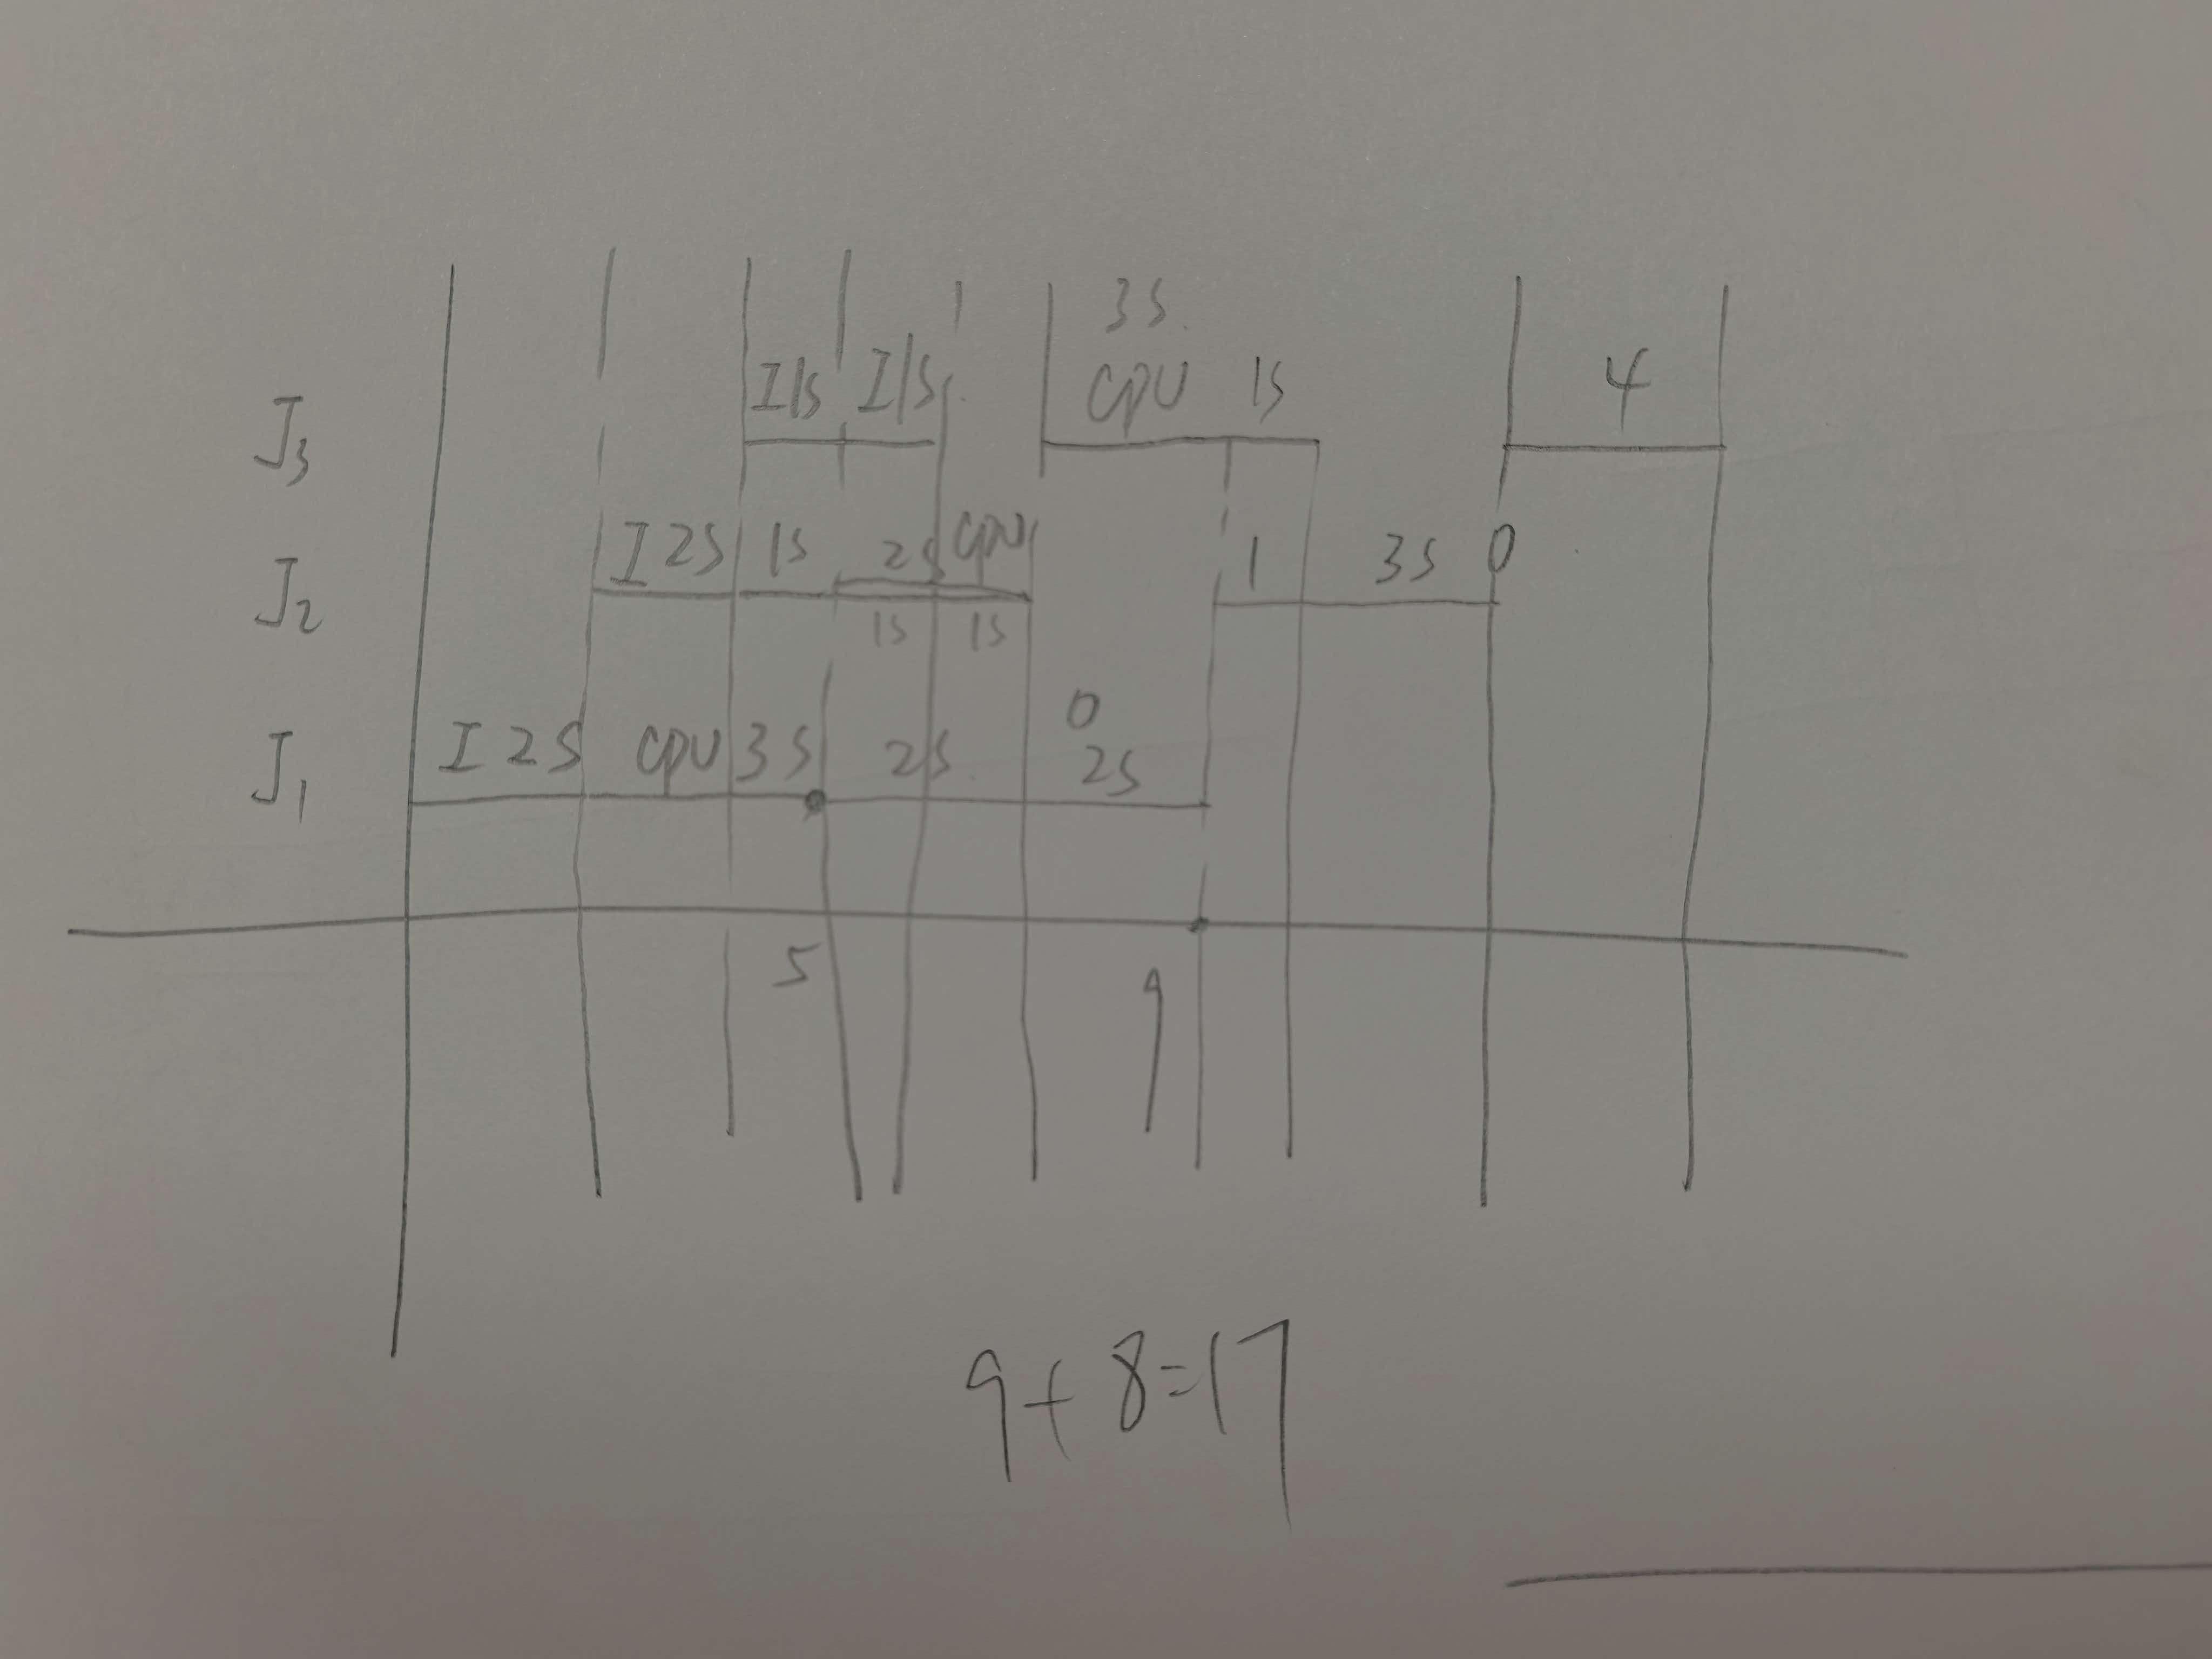 3s
J3 I1s I1s CPU 1s 4
J2 I 2S 1s 2s CPU 1 3s 0
1s 1s
0
J1 I 2S CPU 3S 2S 2s
5 9
9+8=17